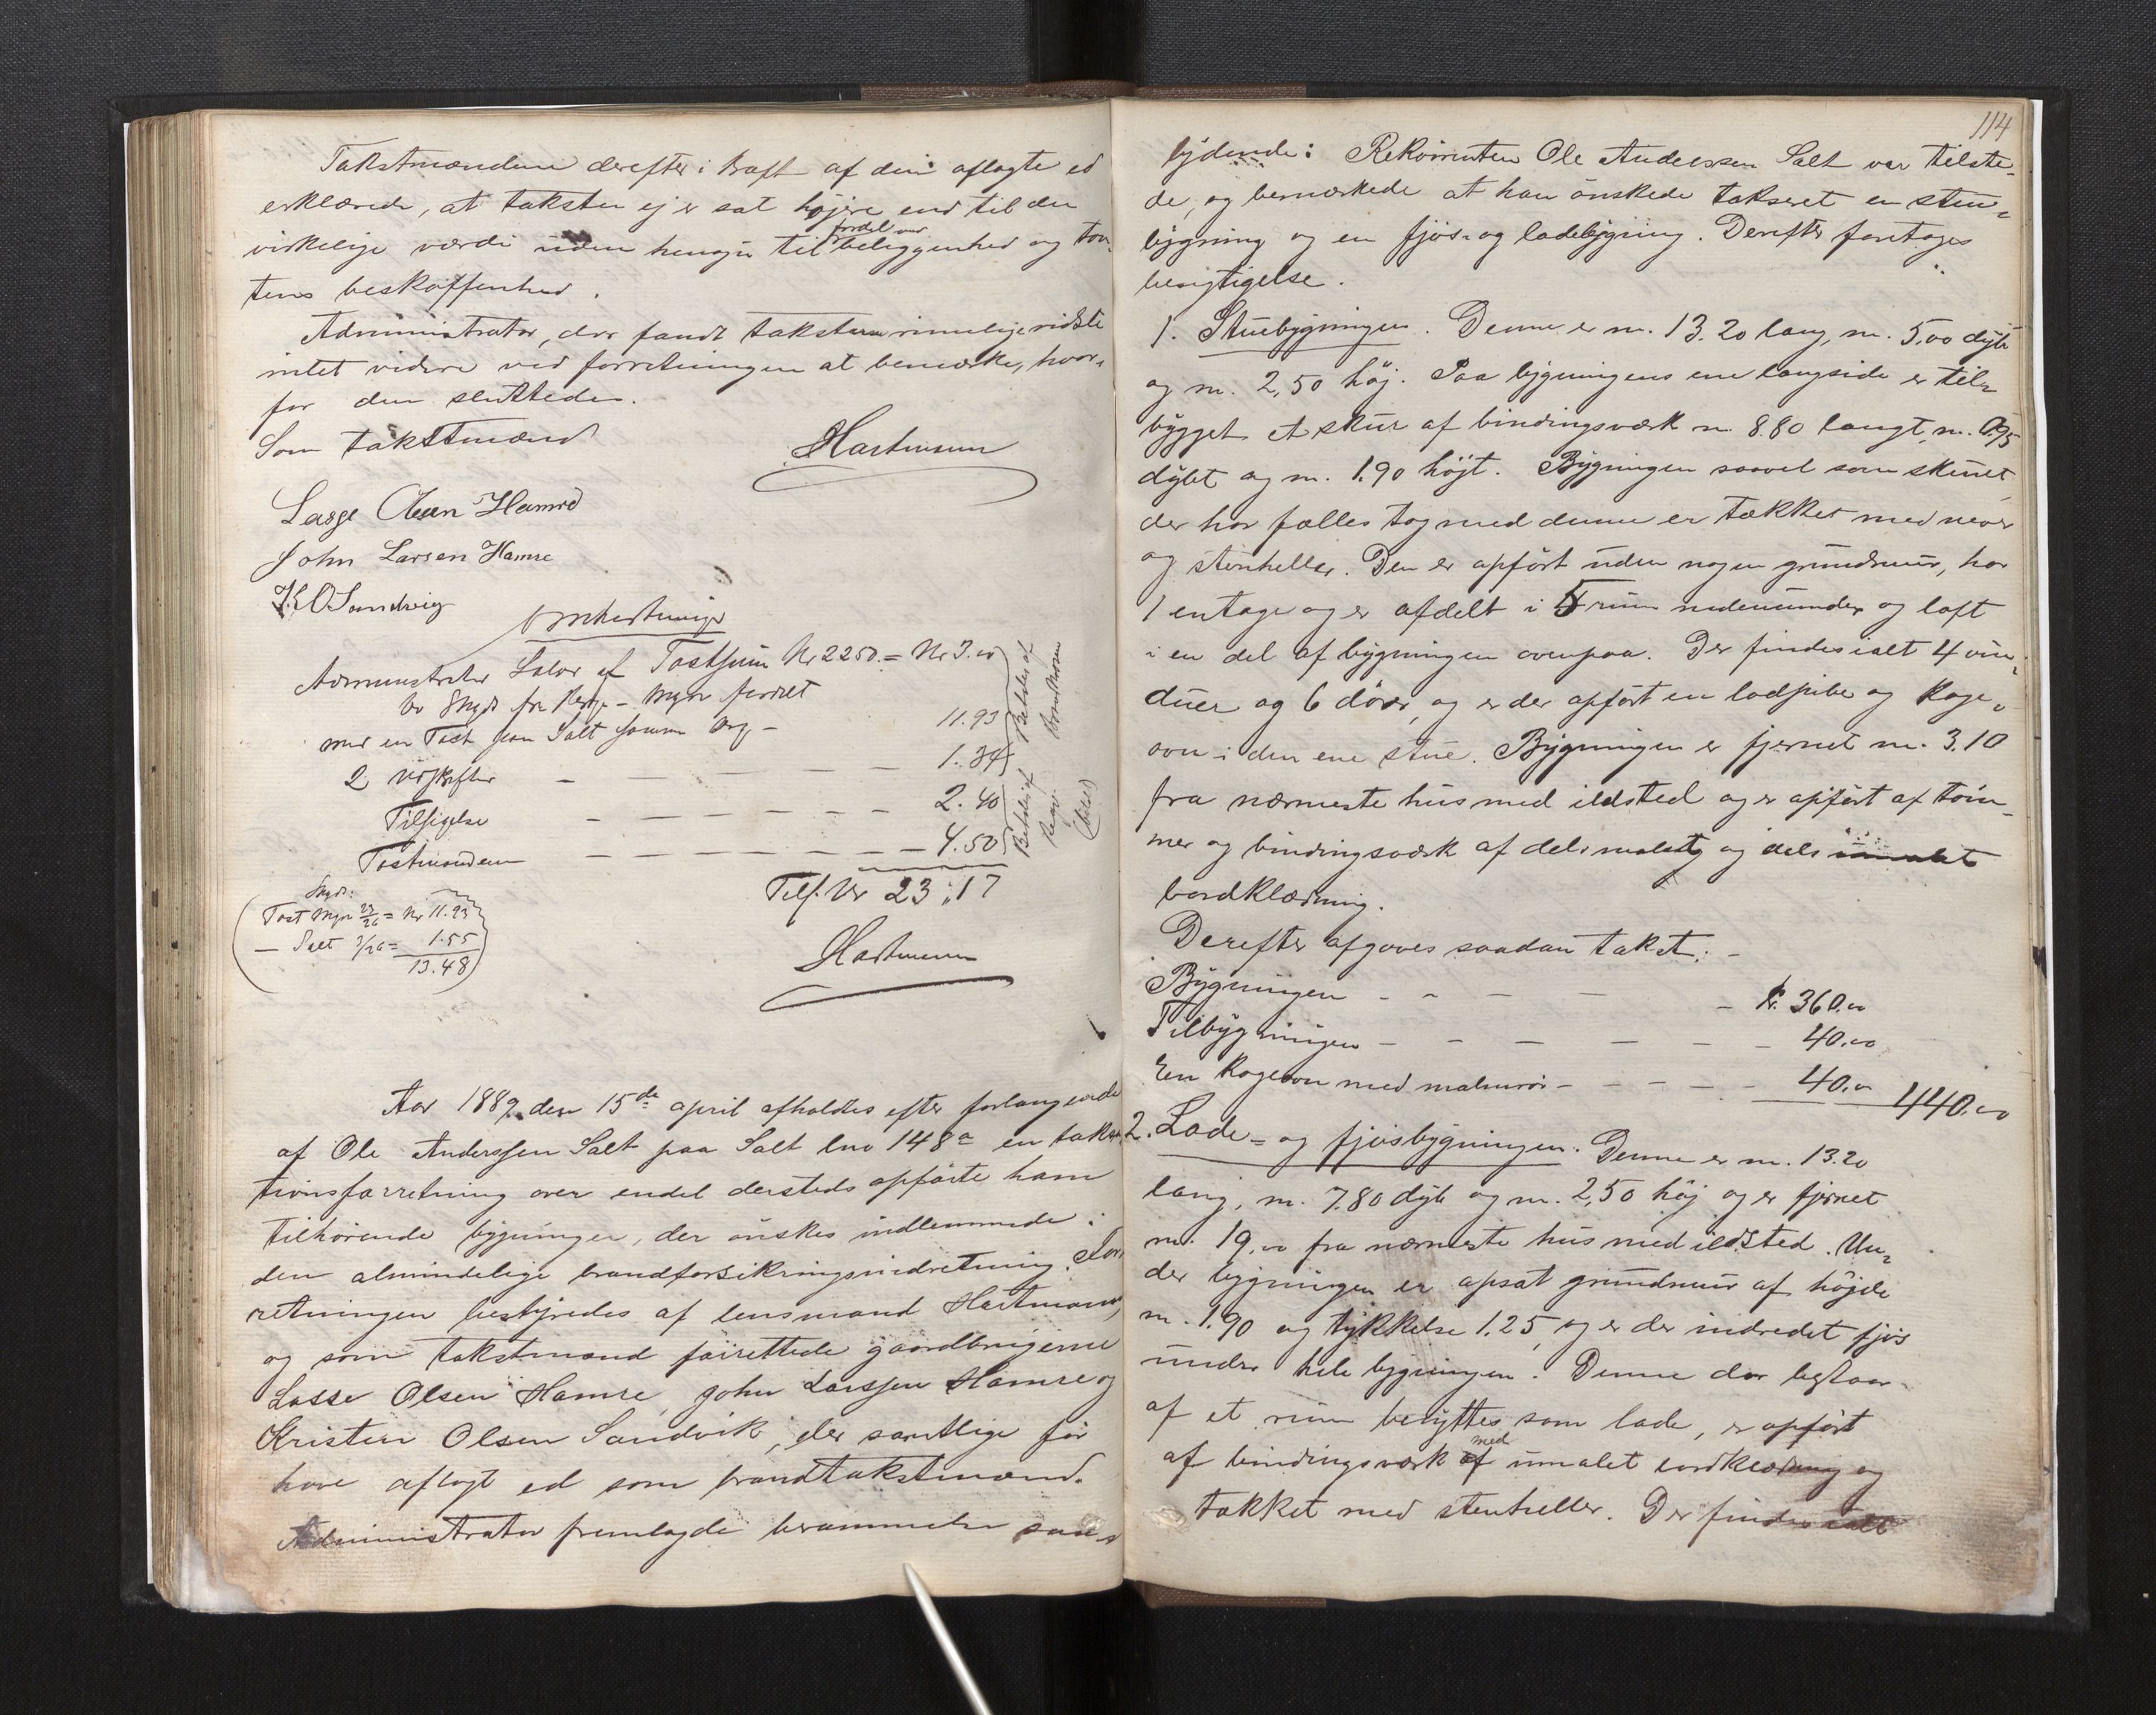 Takstmændene derefter i kraft af den aflagte ed
erklærede, at taksten ej er sat højere end til den
virkelige værdi uden hensyn til fordel ved beliggenhed og tom-
tens beskaffenhed.
Administrator, der fandt taksten rimelig vidste
intet videre ved forretningen at bemærke, hvor-
for den sluttedes.
Som takstmænd
Hartmann
Lasse Olsen Hamre
John Larsen Hamre
K O Sandvig
Omkostninger
Administrator Salær af Takstsum Kr 2250 = Kr 3.00
11.93
1.34
2 Udskrifter — — — — —
2.40
Tilsigelse — — — — — —
4.50
Takstmændene — — — — — —
Betales af Brandkassen
Betales af Rekv.
(betalt)
Tils. Kr 23.17
Skyds:
Takst Myr 23/26 = Kr 11.93
— Salt 3/26 = 1.55
13.48
Hartmann
Aar 1889 den 15de april afholdtes efter forlangende
af Ole Anderssen Salt paa Salt lno 148a en taksa-
tionsforretning over endel dersteds opførte ham
tilhørende bygninger, der ønskes indlemmede i
den almindelige brandforsikringsindretning. For-
retningen bestyredes af lensmand Hartmann,
og som takstmænd fairettede gaardbrugerne
Lasse Olsen Hamre, John Larssen Hamre og
Kristen Olsen Sandvik, der samtlige før
have aflagt ed som brandtakstmænd.
Administrator fremlagde berammelse saa-
114
lydende: Rekvirenten Ole Anderssen Salt var tilste-
de, og bemærkede at han ønskede takseret en stue-
bygning og en fjøs- og ladebygning. Derefter foretoges
besigtigelse.
1. Stuebygningen. Denne er m. 13.20 lang, m. 5.00 dyb
og m. 2,50 høj. Paa bygningens ene langside er til-
bygget et skur af bindingsværk m. 8.80 langt, m. 0.95
dybt og m. 1.90 højt. Bygningen saavel som skuret,
der har fælles tag med denne er tækket med never
og stenheller. Den er opført uden nogen grundmur, har
1 entage og er afdelt i 5 rum nedenunder og loft
i en del af bygningen ovenpaa. Der findes ialt 4 vin-
duer og 6 døre, og er der opført en ladpibe og koge-
ovn i den ene stue. Bygningen er fjernet m. 3.10
fra nærmeste hus med ildsted og er opført af tøm-
mer og bindingsværk af dels malet og dels umalet
bordklædning.
Derefter afgaves saadan takst: -
Bygningen - - - — - Kr. 360.00
Tilbygningen - - - — - - 40.00
En kogeovn med malmrør - - - - - 40.00 440.00
2. Lade- og fjøsbygningen. Denne er m. 13.20
lang, m. 7.80 dyb og m. 2,50 høj og er fjernet
m. 19.00 fra nærmeste hus med ildsted. Un-
der bygningen er opsat grundmur af højde
m. 1.90 og tykkelse 1.25, og er der indredet fjøs
under hele bygningen. Denne der bestaar
af et rum benyttes som lade, er opført
af bindingsværk af med umalet bordklædning og
tækket med stenheller. Der findes ialt